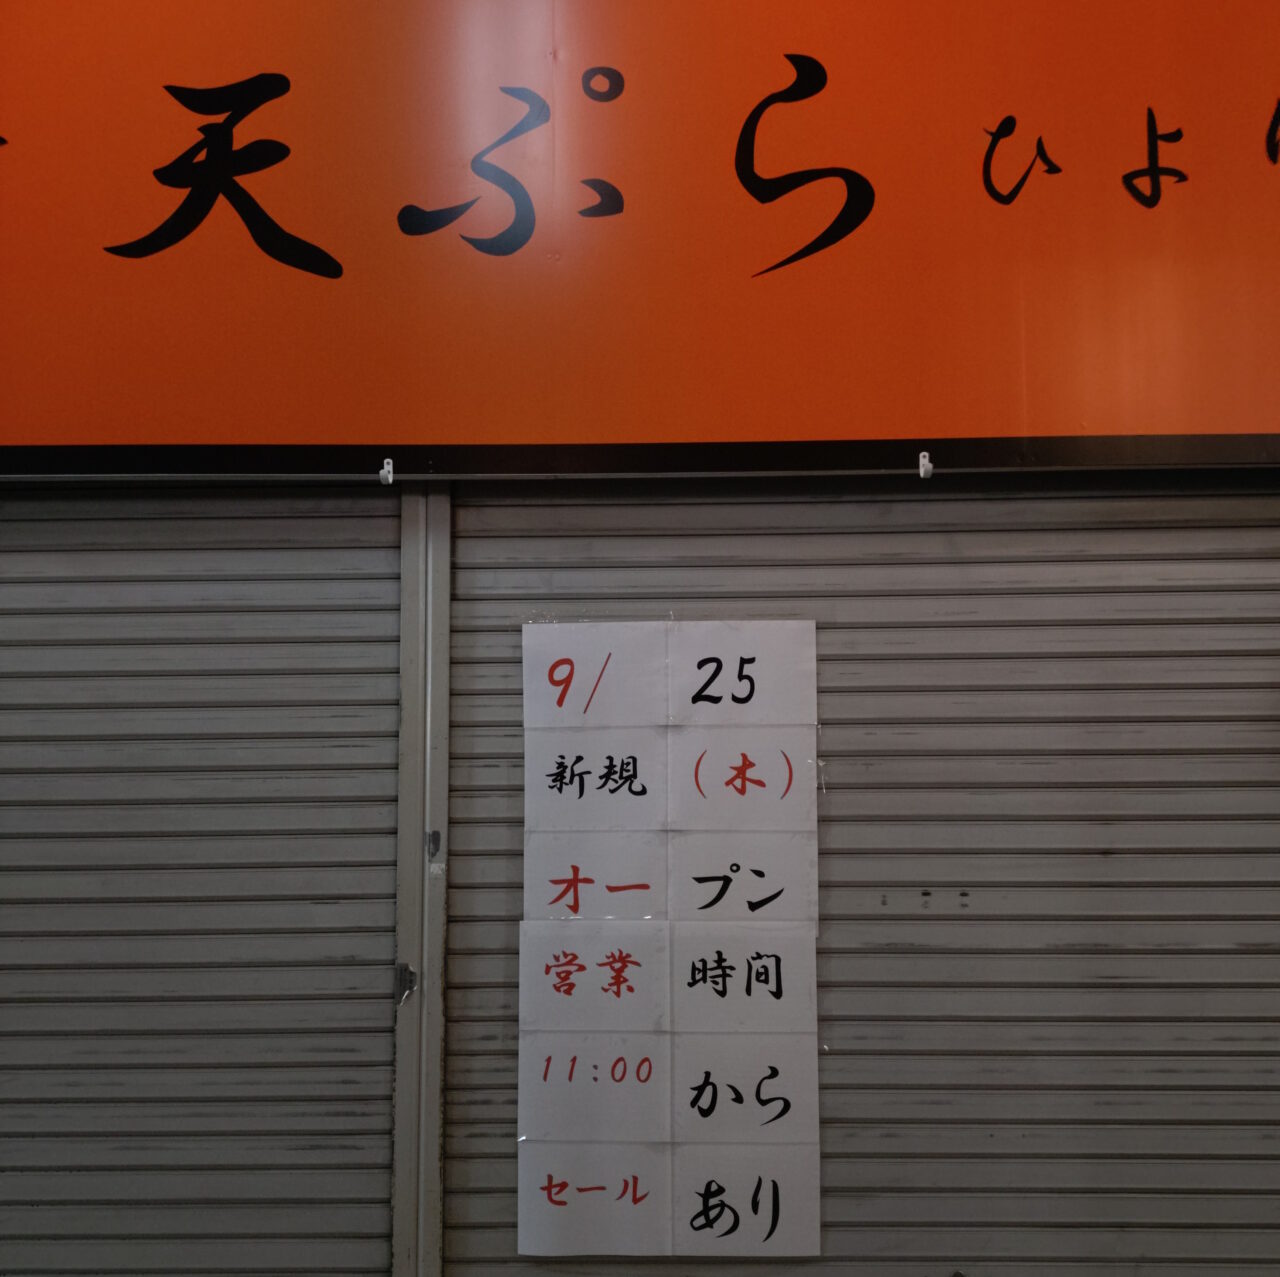 天ぷら ひより
9/ 25
新規 (木)
オー プン
営業 時間
11:00 から
セール あり